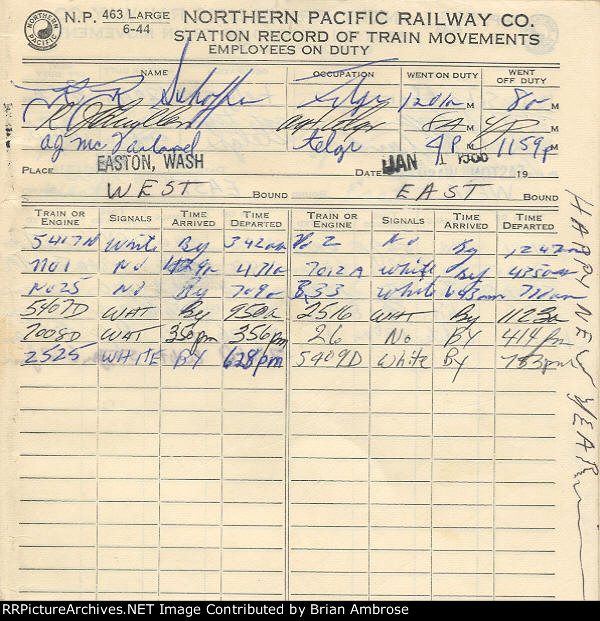 N.P. 463 LARGE 6-44
NORTHERN PACIFIC
NORTHERN PACIFIC RAILWAY CO.
STATION RECORD OF TRAIN MOVEMENTS
EMPLOYEES ON DUTY
NAME OCCUPATION WENT ON DUTY WENT OFF DUTY
1201a M 8a M
8A M 4P M
AJ McFarland telgr 4P M 1159p M
PLACE EASTON, WASH DATE JAN 1 19
WEST BOUND EAST BOUND
TRAIN OR ENGINE SIGNALS TIME ARRIVED TIME DEPARTED TRAIN OR ENGINE SIGNALS TIME ARRIVED TIME DEPARTED
5417D White By 342am No 2 No By 1247am
No 1 No 7012A White By 450am
No 25 No By 709a B33 White 643am
5407D WAT By 950a 2516 WAT By 1123a
7008D WAT 350pm 356pm 26 No BY 414pm
2525 WHITE BY 628pm 5409D White By 753pm
HAPPY NEW YEAR
RRPictureArchives.NET Image Contributed by Brian Ambrose